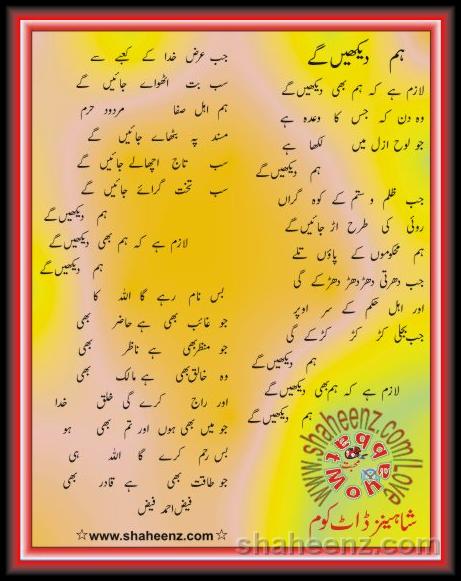 ہم دیکھیں گے
لازم ہے کہ ہم بھی دیکھیں گے
وہ دن کہ جس کا وعدہ ہے
جو لوح ازل میں لکھا ہے
ہم دیکھیں گے
جب ظلم و ستم کے کوہ گراں
روئی کی طرح اڑ جائیں گے
ہم محکوموں کے پاؤں تلے
جب دھرتی دھڑ دھڑ دھڑکے گی
اور اہل حکم کے سر اوپر
جب بجلی کڑ کڑ کڑکے گی
ہم دیکھیں گے
لازم ہے کہ ہم بھی دیکھیں گے
ہم دیکھیں گے
جب عرض خدا کے کعبے سے
سب بت اٹھواے جائیں گے
ہم اہل صفا مردود حرم
مسند پہ بٹھاے جائیں گے
سب تاج اچھالے جائیں گے
سب تخت گرائے جائیں گے
ہم دیکھیں گے
لازم ہے کہ ہم بھی دیکھیں گے
ہم دیکھیں گے
بس نام رہے گا اللہ کا
جو غائب بھی ہے حاضر بھی
جو منظر بھی ہے ناظر بھی
وہ خالق بھی ہے مالک بھی
اور راج کرے گی خلق خدا
جو میں بھی ہوں اور تم بھی ہو
بس رحم کرے گا اللہ ہی
جو طاقت بھی ہے قادر بھی
فیض احمد فیض
☆www.shaheenz.com☆
www.shaheenz.com/ILove
شاہینز ڈاٹ کوم
shaheenz.com